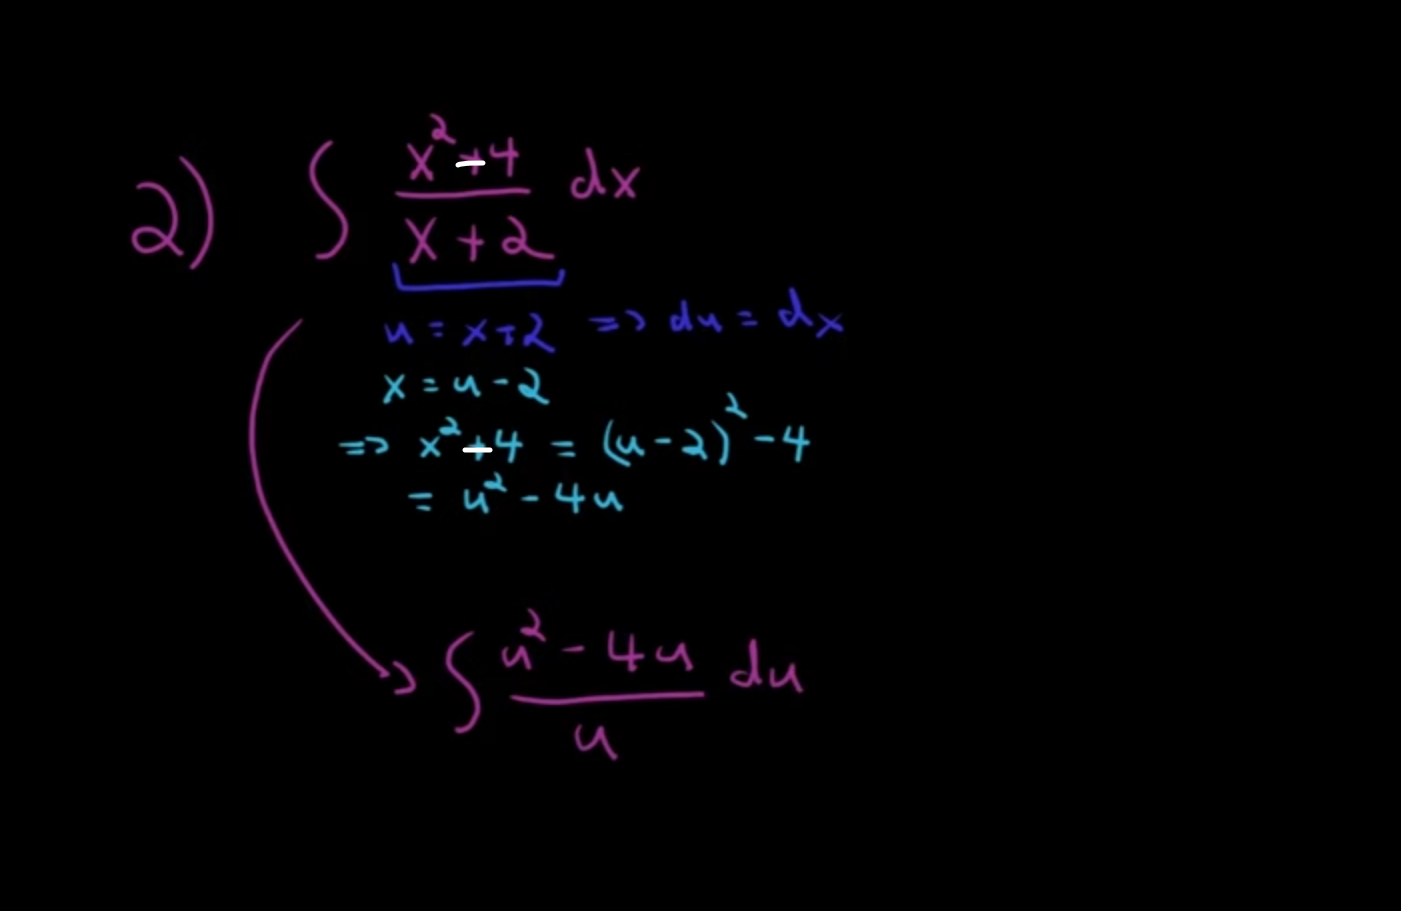 2) ∫ (x² - 4)/(x + 2) dx
u = x + 2 => du = dx
x = u - 2
=> x² - 4 = (u - 2)² - 4
= u² - 4u
∫ (u² - 4u)/u du